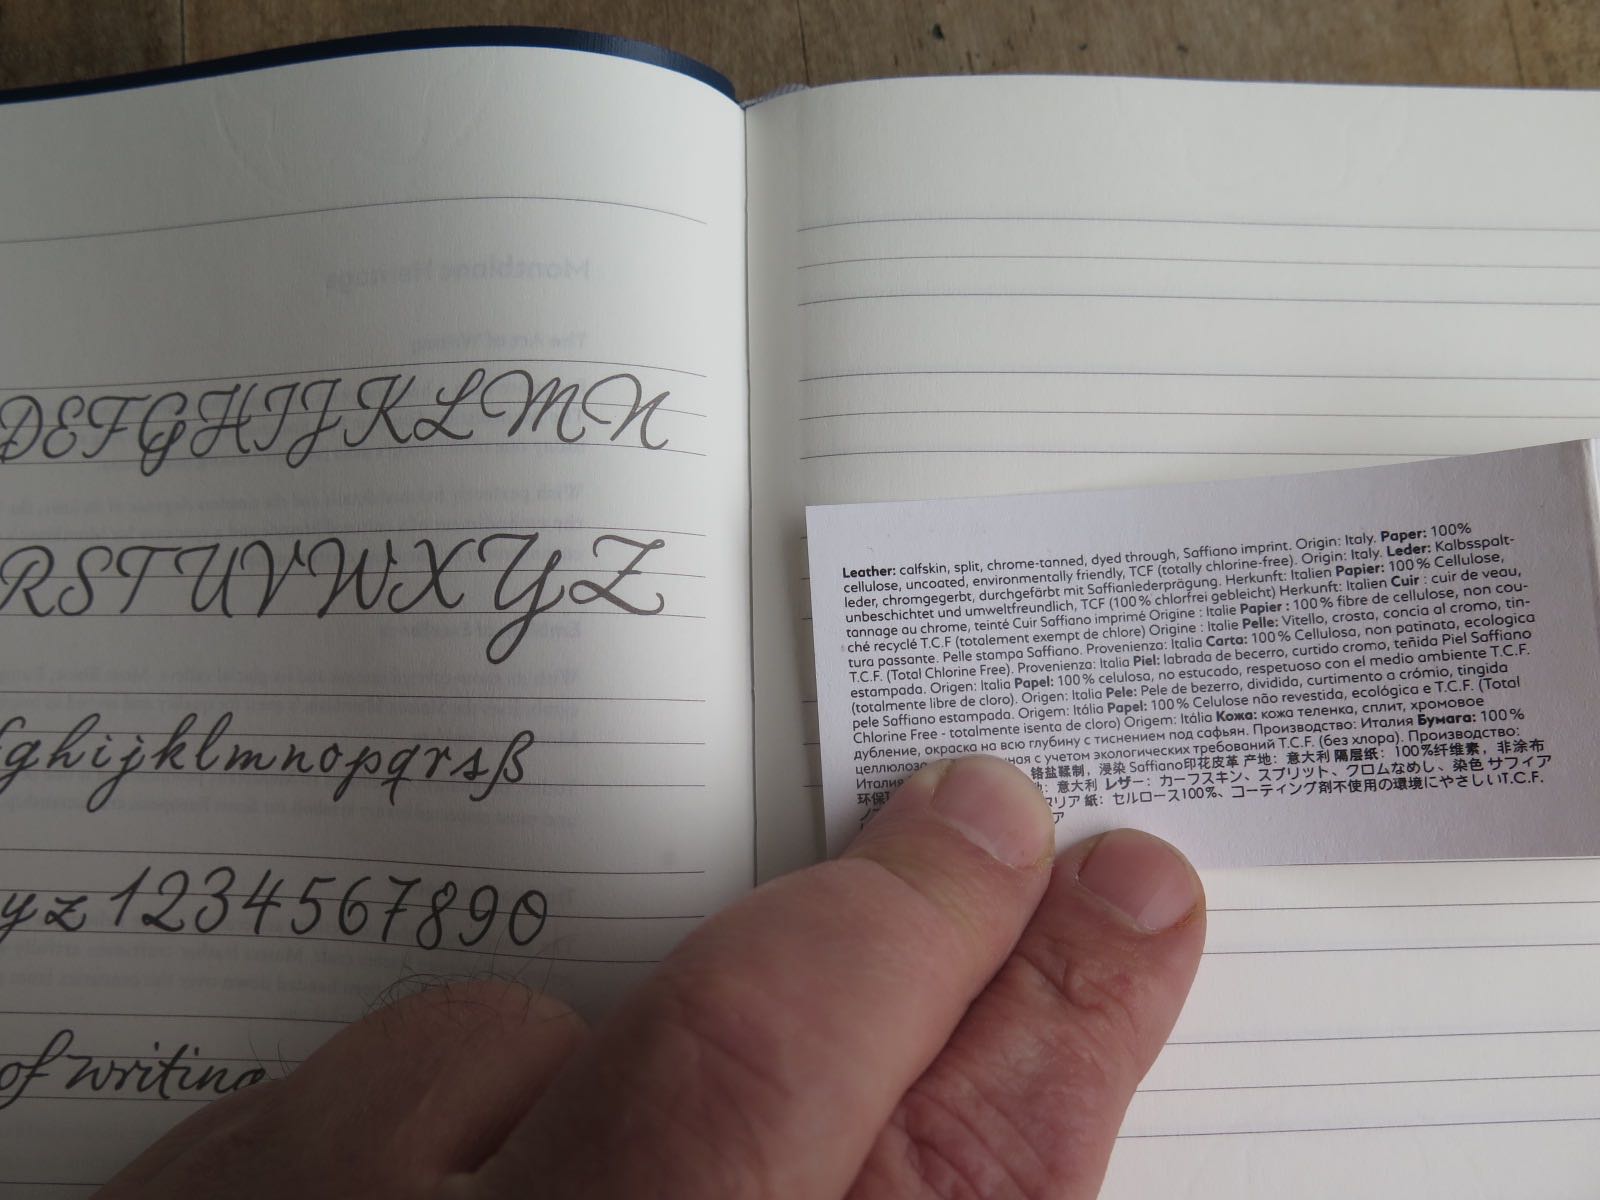 DEFGHIJKLMN
RSTUVWXYZ
fghijklmnopqrsß
yz1234567890
of writing
Leather: calfskin, split, chrome-tanned, dyed through, Saffiano imprint. Origin: Italy. Paper: 100%
cellulose, uncoated, environmentally friendly, TCF (totally chlorine-free). Origin: Italy. Leder: Kalbsspalt-
leder, chromgegerbt, durchgefärbt mit Saffianlederprägung. Herkunft: Italien Papier: 100% Cellulose,
unbeschichtet und umweltfreundlich, TCF (100% chlorfrei gebleicht) Herkunft: Italien Cuir : cuir de veau,
tannage au chrome, teinté Cuir Saffiano imprimé Origine : Italie Papier : 100% fibre de cellulose, non cou-
ché recyclé T.C.F (totalement exempt de chlore) Origine : Italie Pelle: Vitello, crosta, concia al cromo, tin-
tura passante. Pelle stampa Saffiano. Provenienza: Italia Carta: 100% Cellulosa, non patinata, ecologica
T.C.F. (Total Chlorine Free). Provenienza: Italia Piel: labrada de becerro, curtido cromo, teñida Piel Saffiano
estampada. Origen: Italia Papel: 100% celulosa, no estucado, respetuoso con el medio ambiente T.C.F.
(totalmente libre de cloro). Origen: Italia Pele: Pele de bezerro, dividida, curtimento a crómio, tingida
pele Saffiano estampada. Origem: Itália Papel: 100% Celulose não revestida, ecológica e T.C.F. (Total
Chlorine Free - totalmente isenta de cloro) Origem: Itália Кожа: кожа теленка, сплит, хромовое
дубление, окраска на всю глубину с тиснением под сафьян. Производство: Италия Бумага: 100%
целлюлоза с учетом экологических требований T.C.F. (без хлора). Производство:
Италия 铬盐鞣制，浸染 Saffiano印花皮革 产地：意大利 隔层纸：100%纤维素，非涂布
环保 意大利 レザー：カーフスキン、スプリット、クロムなめし、染色 サフィア
ノ リア 紙：セルロース100%、コーティング剤不使用の環境にやさしいT.C.F.